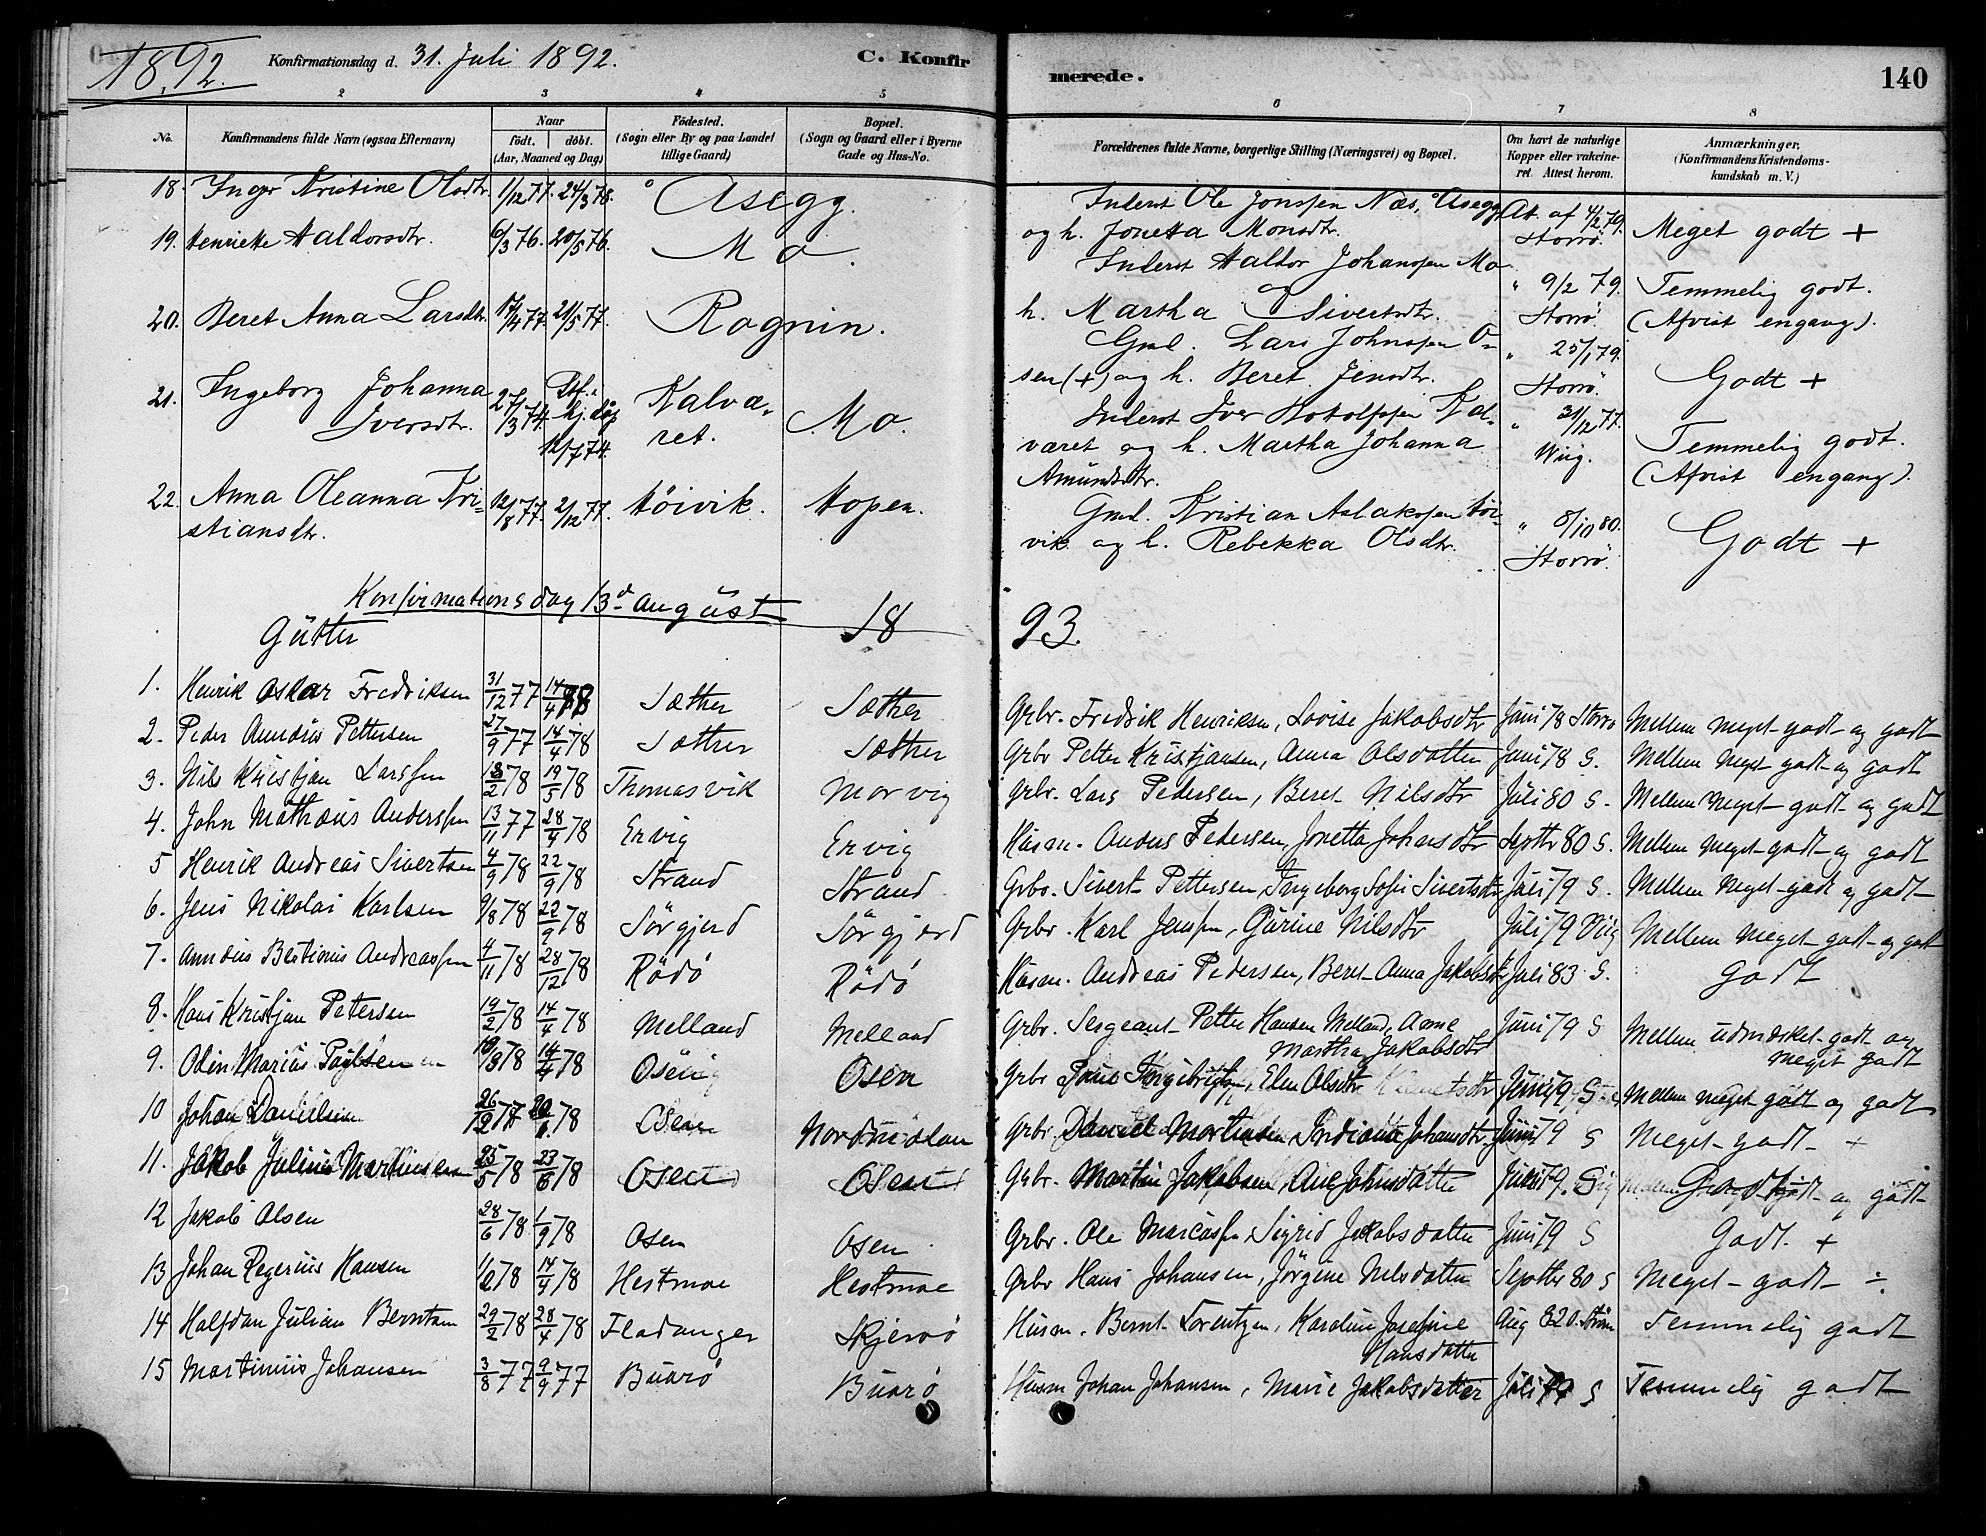 1892.
Konfirmationsdag d. 31. Juli 1892.
C. Konfirmerede.
140
2 3 4 5 6 7 8
No.
Konfirmandens fulde Navn (ogsaa Efternavn)
Naar
født. døbt.
(Aar, Maaned og Dag)
Fødested.
(Sogn eller By og paa Landet
tillige Gaard)
Bopæl.
(Sogn og Gaard eller i Byerne
Gade og Hus-No.
Forældrenes fulde Navne, borgerlige Stilling (Næringsvei) og Bopæl.
Om havt de naturlige
Kopper eller vakcine-
ret. Attest herom.
Anmærkninger.
(Konfirmandens Kristendoms-
kundskab m. V.)
18. Inger Kristine Olsdtr. 1/12 77. 24/3 78. Åsegg. Inderst Ole Jonssen Næs, Åsegg
og h. Jonetta Monsdtr. At. af 4/2 79. Storrö. Meget godt +
19. Henrikke Haldorsdtr. 6/3 76. 20/5 76. Mo. Inderst Haldor Johanssen Mo og
h. Martha Sivertsdtr. " 9/2 79. Storrö. Temmelig godt.
(Afvist engang).
20. Beret Anna Larsdtr. 17/4 77. 21/5 77. Rognin. Gmd. Lars Johnssen O-
sen (+) og h. Beret Jensdtr. " 25/1 79. Storrö. Godt +
21. Ingeborg Johanna
Iversdtr. 27/3 74. hj. döp 12/7 74. Kalva-
ret. Mo. Inderst Iver Rotolfssen Kal-
varet og h. Martha Johanna
Amundsdtr. " 31/12 77. Wiig. Temmelig godt.
(Afvist engang).
22. Anna Oleanna Kri-
stiansdtr. 12/8 77. 2/12 77. Höivik. Hopen. Gmd. Kristian Aslakssen Höi-
vik og h. Rebekka Olsdtr. " 8/10 80. Storrö. Godt +
Konfirmationsdag 13d august 1893.
Gutter
1. Henrik Oskar Fredriksen 31/12 77 14/4 78 Sæther Sæther Grbr. Fredrik Henriksen, Lovise Jakobsdtr Juni 78 Storrö Mellem meget godt og godt
2. Peder Amdøus Pettersen 27/9 77 14/4 78 Sæther Sæther Grbr Petter Kristjansen, Anna Olsdatter Juni 78 S. Mellem meget godt og godt
3. Nils Kristjan Larssen 18/2 78 19/5 78 Thomasvik Morvig Grbr. Lars Pedersen, Beret Nilsdtr Juli 80 S. Mellem meget godt og godt
4. John Mathæus Anderssen 13/11 77 28/4 78 Ervig Ervig Husm. Anders Pedersen, Jonetta Johansdtr Septbr 80 S. Mellem meget godt og godt
5 Henrik Andreas Sivertsen 4/9 78 22/9 78 Strand Strand Grbr. Sivert Pettersen, Ingeborg Sofie Sivertsdtr Juli 79 S. Mellem meget godt og godt
6. Jens Nikolai Karlsen 9/8 78 22/9 78 Sörgjerd Sörgjerd Grbr. Karl Jenssen, Gurine Nilsdtr Juli 79 Viig Mellem meget godt og godt
7. Amdøus Bertinius Andreassen 4/11 78 28/12 78 Rödö Rödö Husm. Andreas Pedersen, Beret Anna Jakobsdtr Juli 83 S. Godt
8. Hans Kristjan Petersen 19/2 78 14/4 78 Melland Melland Grbr. Sergeant Petter Hansen Melland, Anne
Martha Jakobsdtr Juni 79 S Mellem udmærket godt og
meget godt
9. Odin Marius Paulsen 10/3 78 14/4 78 Osen Osen Grbr Paul Ingebrigtsen, Elen Olsdtr Juni 79 S Mellem meget godt og godt
10 Johan Danielsen 26/12 77 78 Osen Nordmelan Grbr Daniel Mortensen, Indiana Johansdtr. Juni 79 S Meget godt +
11. Jakob Julius Martinsen 25/5 78 23/6 78 Osen Osen Grbr. Martin Jakobsen, Ane Johnsdatter Juni 79. S Godt
12 Jakob Olsen 28/6 78 1/9 78 Osen Osen Grbr. Ole Marcussen, Sigrid Jakobsdatter Juni 79 S Godt. +
13 Johan Regerius Hansen 1/2 78 14/4 78 Hestmoe Hestmoe Grbr Hans Johansen, Jörgine Nelsdatter Septbr 80 S Meget godt ÷
14 Halfdan Julian Berntsen 29/2 78 28/4 78 Fladanger Skjervö Husm. Bernt Lorentzen, Karoline Josefine
Hansdatter Aug 82 Temmelig godt
15 Martinus Johansen 3/8 77 9/9 77 Buarö Buarö Husm Johan Johansen, Marie Jakobsdatter Juli 79 S Temmelig godt